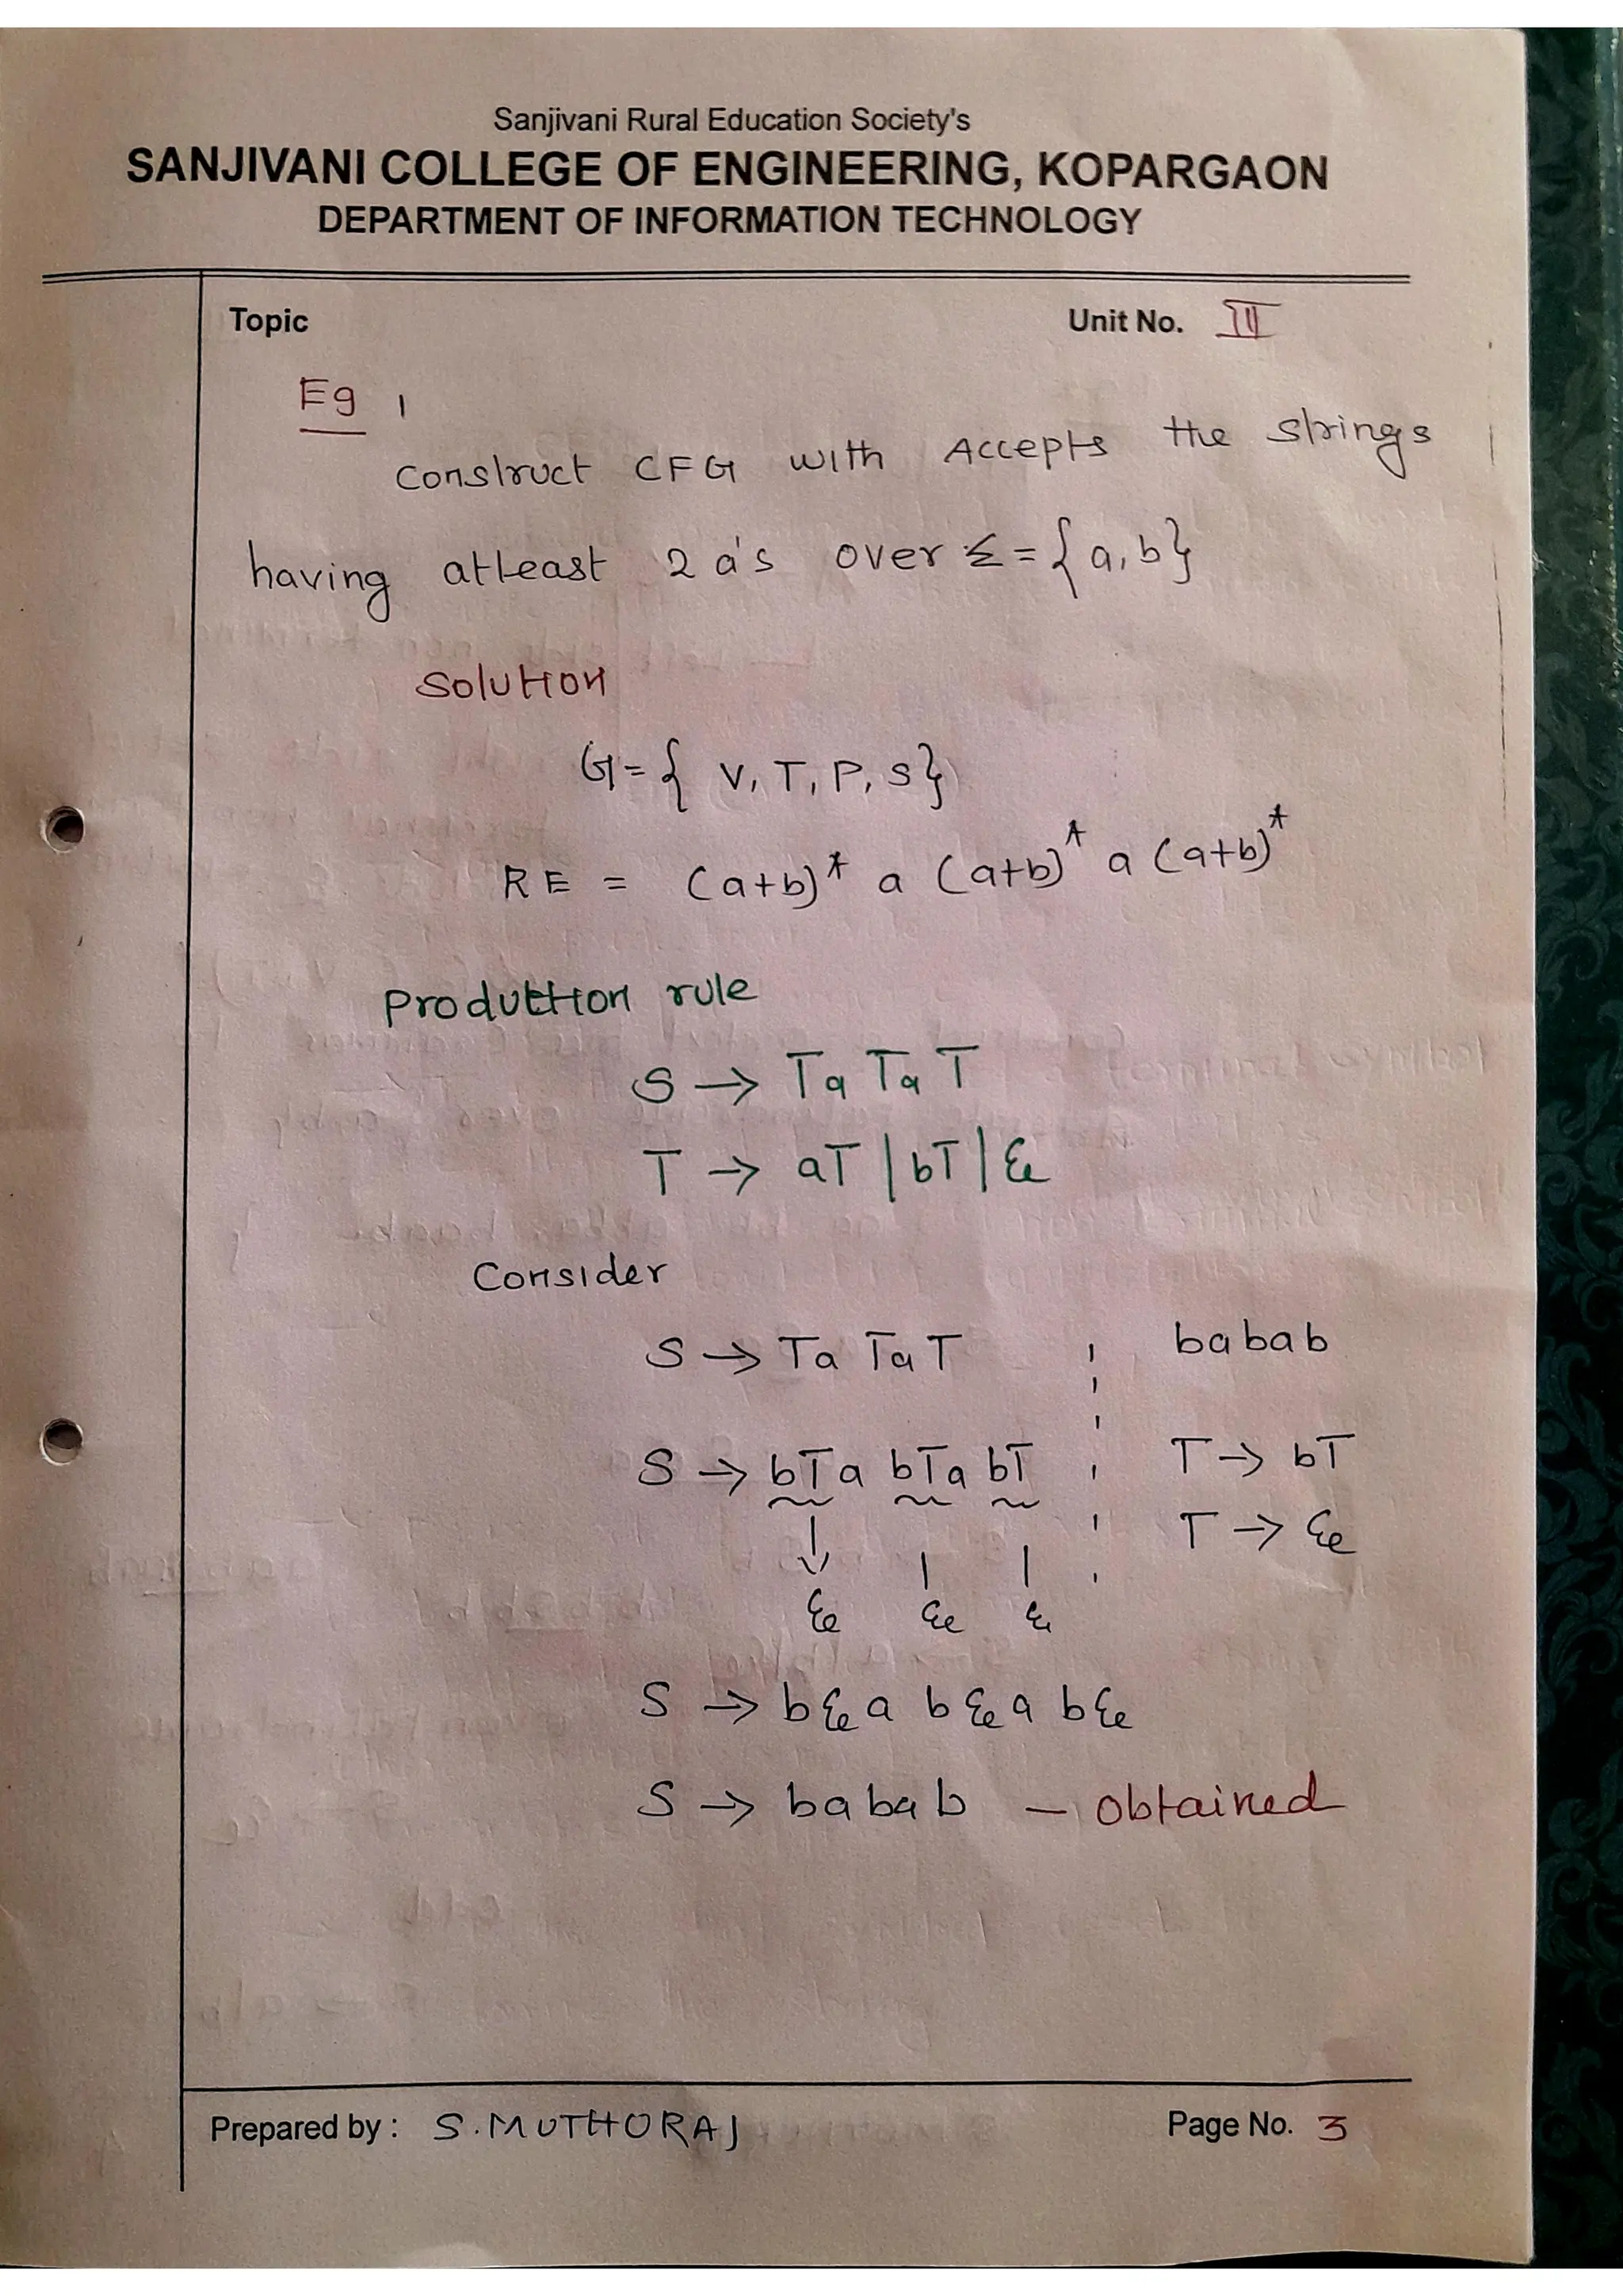 Sanjivani Rural Education Society's
SANJIVANI COLLEGE OF ENGINEERING, KOPARGAON
DEPARTMENT OF INFORMATION TECHNOLOGY
Topic Unit No. III
Eg 1
Construct CFG with Accepts the strings
having atleast 2 a's over Σ = {a,b}
Solution
G = { V, T, P, S}
RE = (a+b)* a (a+b)* a (a+b)*
Production rule
S → Ta Ta T
T → aT | bT | ε
Consider
S → Ta Ta T babab
S → bTa bTa bT T → bT
T → ε
ε ε ε
S → bεa bεa bε
S → babab – obtained
Prepared by : S.MUTHURAJ Page No. 3